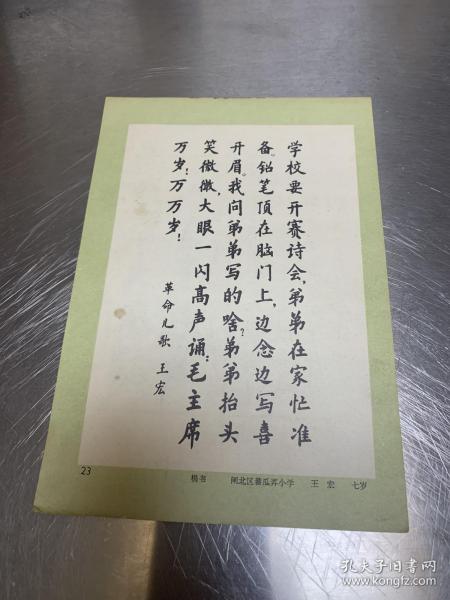 学校要开赛诗会，弟弟在家忙准
备。铅笔顶在脑门上，边念边写喜
开眉。我问弟弟写的啥？弟弟抬头
笑微微，大眼一闪高声诵：毛主席
万岁！万万岁！
革命儿歌 王宏
23
楷书 闸北区蕃瓜弄小学 王宏 七岁
孔夫子旧书网
kongfz.com